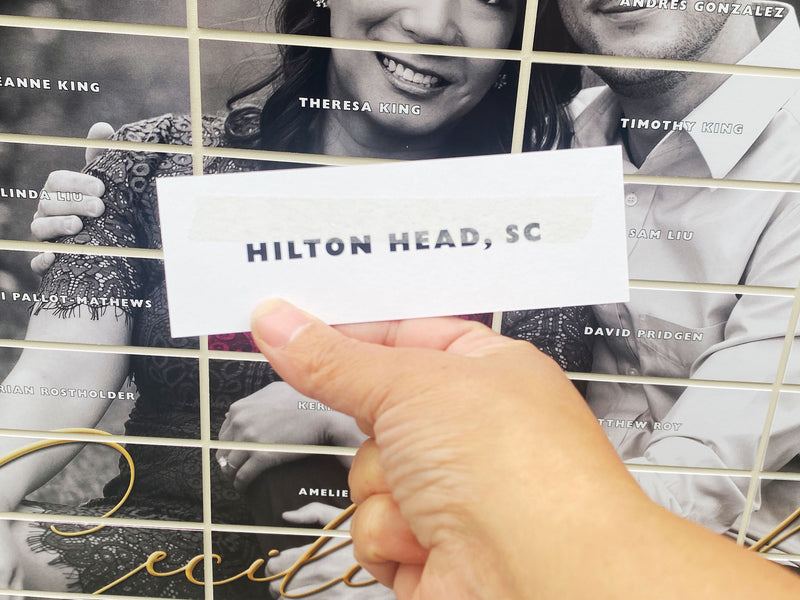 ANDRÉS GONZALEZ
EANNE KING
THERESA KING
TIMOTHY KING
LINDA LIU
SAM LIU
HILTON HEAD, SC
I PALLOT-MATHEWS
DAVID PRIDGEN
RIAN ROSTHOLDER
KER
TTHEW ROY
AMELIE